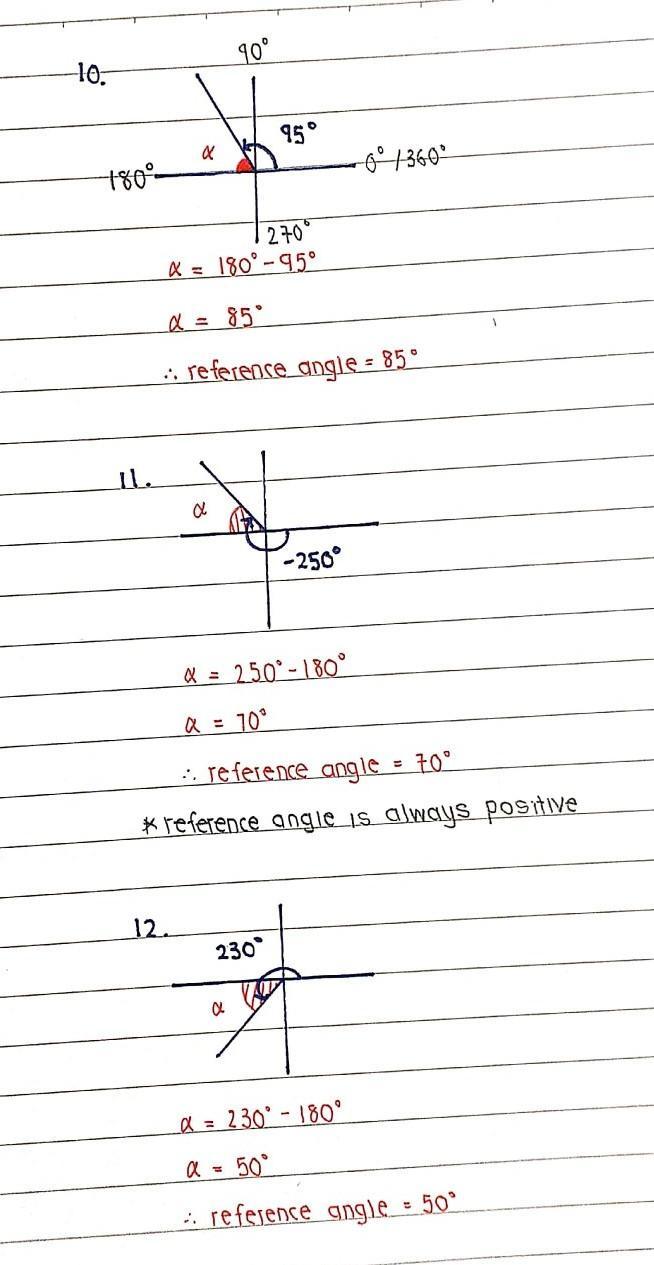 90°
10.
95°
α
180°
0° / 360°
270°
α = 180° - 95°
α = 85°
∴ reference angle = 85°
11.
α
-250°
α = 250° - 180°
α = 70°
∴ reference angle = 70°
* reference angle is always positive
12.
230°
α
α = 230° - 180°
α = 50°
∴ reference angle = 50°